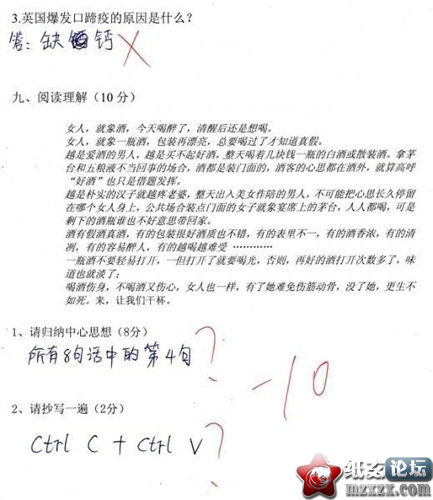 3.英国爆发口蹄疫的原因是什么?
答:缺钙
九、阅读理解(10 分)
女人,就象酒,今天喝醉了,清醒后还是想喝。
女人,就象一瓶酒,包装再漂亮,总要喝过了才知道真假。
越是爱酒的男人,越是买不起好酒,整天喝着几块钱一瓶的白酒或散装酒。拿茅
台和五粮液不当回事的场合,酒都是装门面的,酒客的心思都在酒外,就算高呼
“好酒”也只是借题发挥。
越是朴实的汉子就越疼老婆,整天出入美女作陪的男人,不可能把心思长久停留
在哪个女人身上,公共场合装点门面的女子就象宴席上的茅台,人人都喝,可是
剩下的酒瓶谁也不好意思带回家。
酒有假酒真酒,有的包装很好酒质也不错,有的表里不一,有的酒香浓,有的清
冽,有的容易醉人,有的越喝越难受 …………
一瓶酒不要轻易打开,一但打开了就要喝光,否则,再好的酒打开次数多了,味
道也就淡了;
喝酒伤身,不喝酒又伤心,女人也一样,有了她难免伤筋动骨,没了她,更生不
如死。来,让我们干杯。
1、请归纳中心思想(8分)
所有8句话中的第4句?
-10
2、请抄写一遍(2分)
Ctrl C + Ctrl V?
纸客论坛
www.mzxzx.com